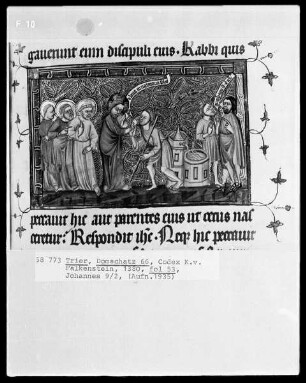 F 10
gaverunt eum discipuli eius. Rabbi quis
peccavit hic aut parentes eius ut cecus nas
ceretur? Respondit ihc. Neq; hic peccavit
58 773 Trier, Domschatz 66, Codex K.v.
Falkenstein, 1380, fol 53,
Johannes 9/2, (Aufn.1935)